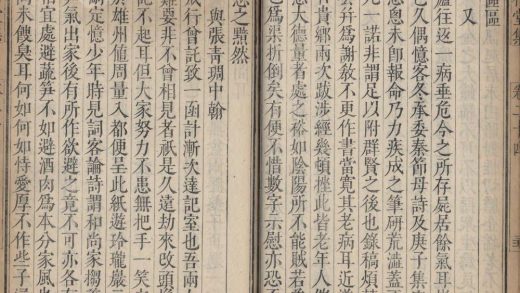 區區
又
廬往返一病垂危今之所存屍居餘氣耳
已久偶憶客冬承委秦節母詩及庚子集
悤未卽報命乃力疾成之筆研荒澁蓋
一諾非謂足以附羣賢之後也錄稿煩
去并爲謝敎不更作書當寬其老病耳近
貴鄉兩次跋涉經幾頓挫此皆老年人催
大德量者處之裕如陰陽所不能賊若
已爲柴折倒矣有便不惜數字示慰亦恐
之黯然
與張青琱中翰
成行曾託致一函計漸次達記室也吾兩
難要非不會相見者祇是久遠劫來改頭
不起耳但大家努力不患無把手一笑
於雄州値周量入都便呈此紙遊玲瓏巖
定憶少年時見詞客論詩謂和尙家搊
氣出家後有所作欲避之竟不可亦各
相宜處避蔬筍不如避酒肉爲本分家風
尚未餿臭耳何如何如恃愛厚不作些子